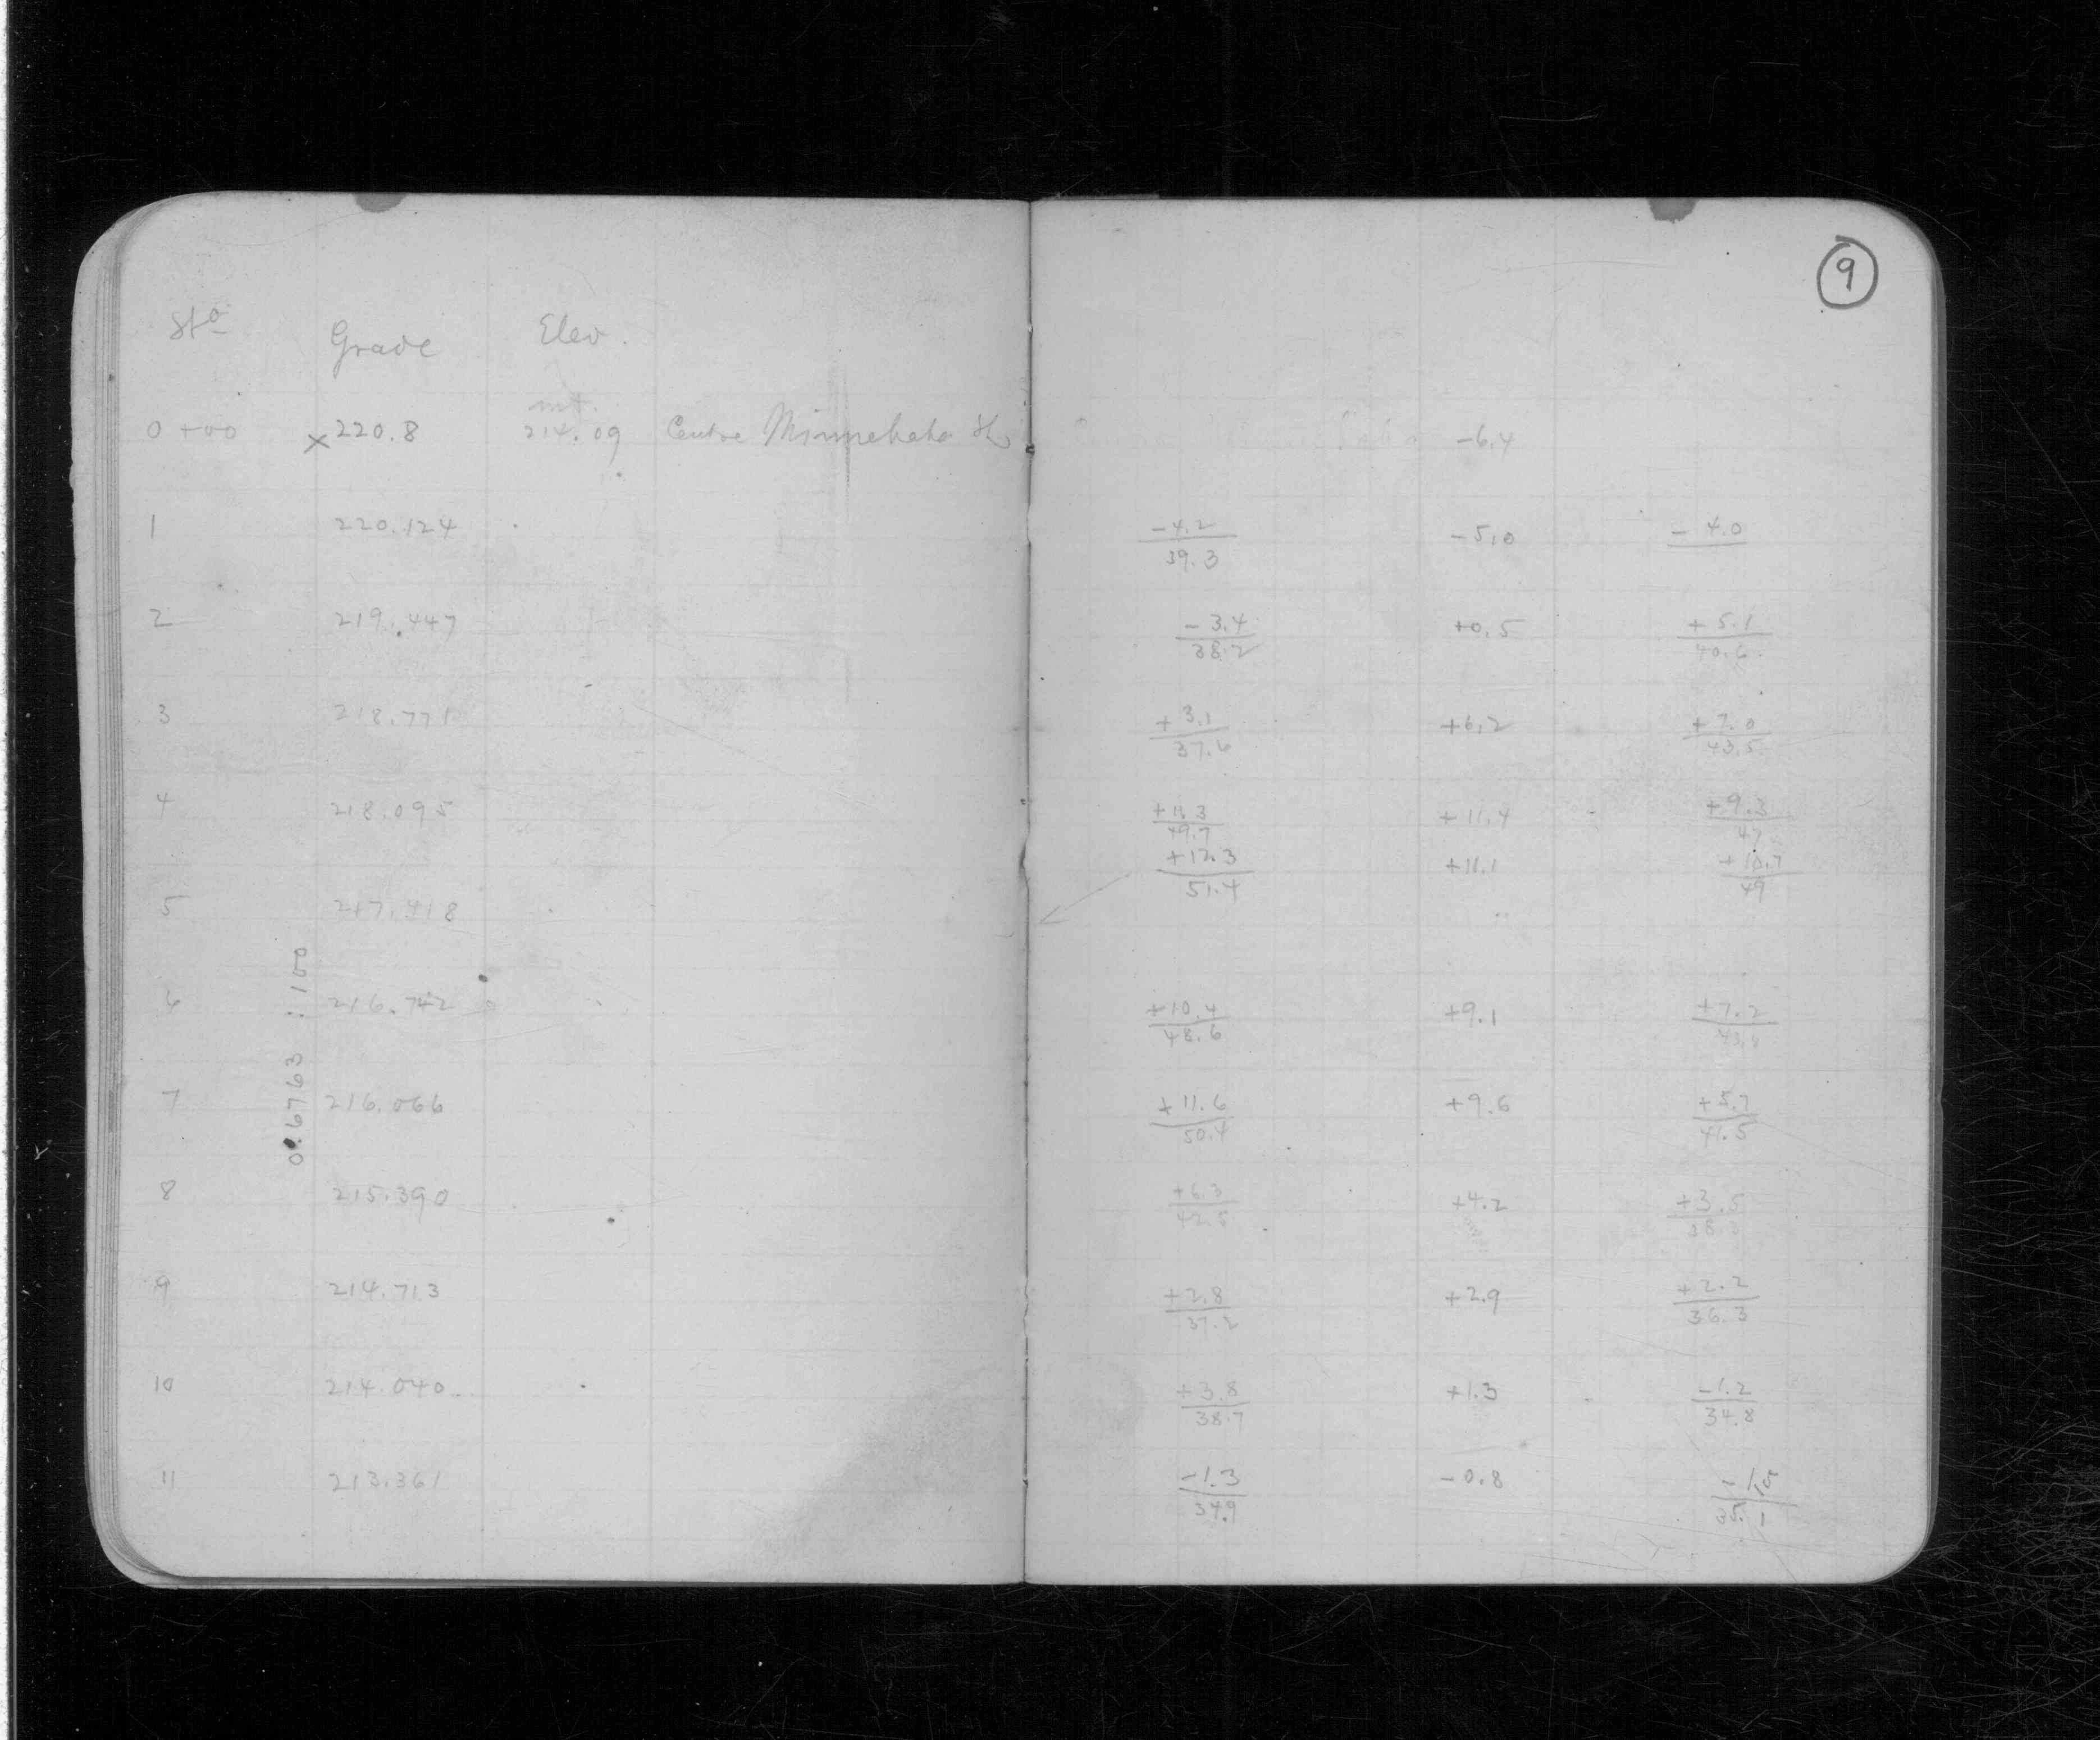 9
Sta Grade Elev.
int.
0+00 x220.8 214.09 Centre Minnehaha St -6.4
1 220.124 -4.2 -5.0 -4.0
39.3
2 219.447 -3.4 +0.5 +5.1
38.2 40.6
3 218.771 +3.1 +6.2 +7.0
37.6 43.5
4 218.095 +11.3 +11.4 +9.3
49.7 47
+12.3 +11.1 +10.7
51.4 49
5 217.418
6 216.742 +10.4 +9.1 +7.2
48.6
0.6763 : 100
7 216.066 +11.6 +9.6 +5.7
50.4 41.5
8 215.390 +6.3 +4.2 +3.5
42.5
9 214.713 +2.8 +2.9 +2.2
37.2 36.3
10 214.040 +3.8 +1.3 -1.2
38.7 34.8
11 213.361 -1.3 -0.8 -1.5
34.9 35.1